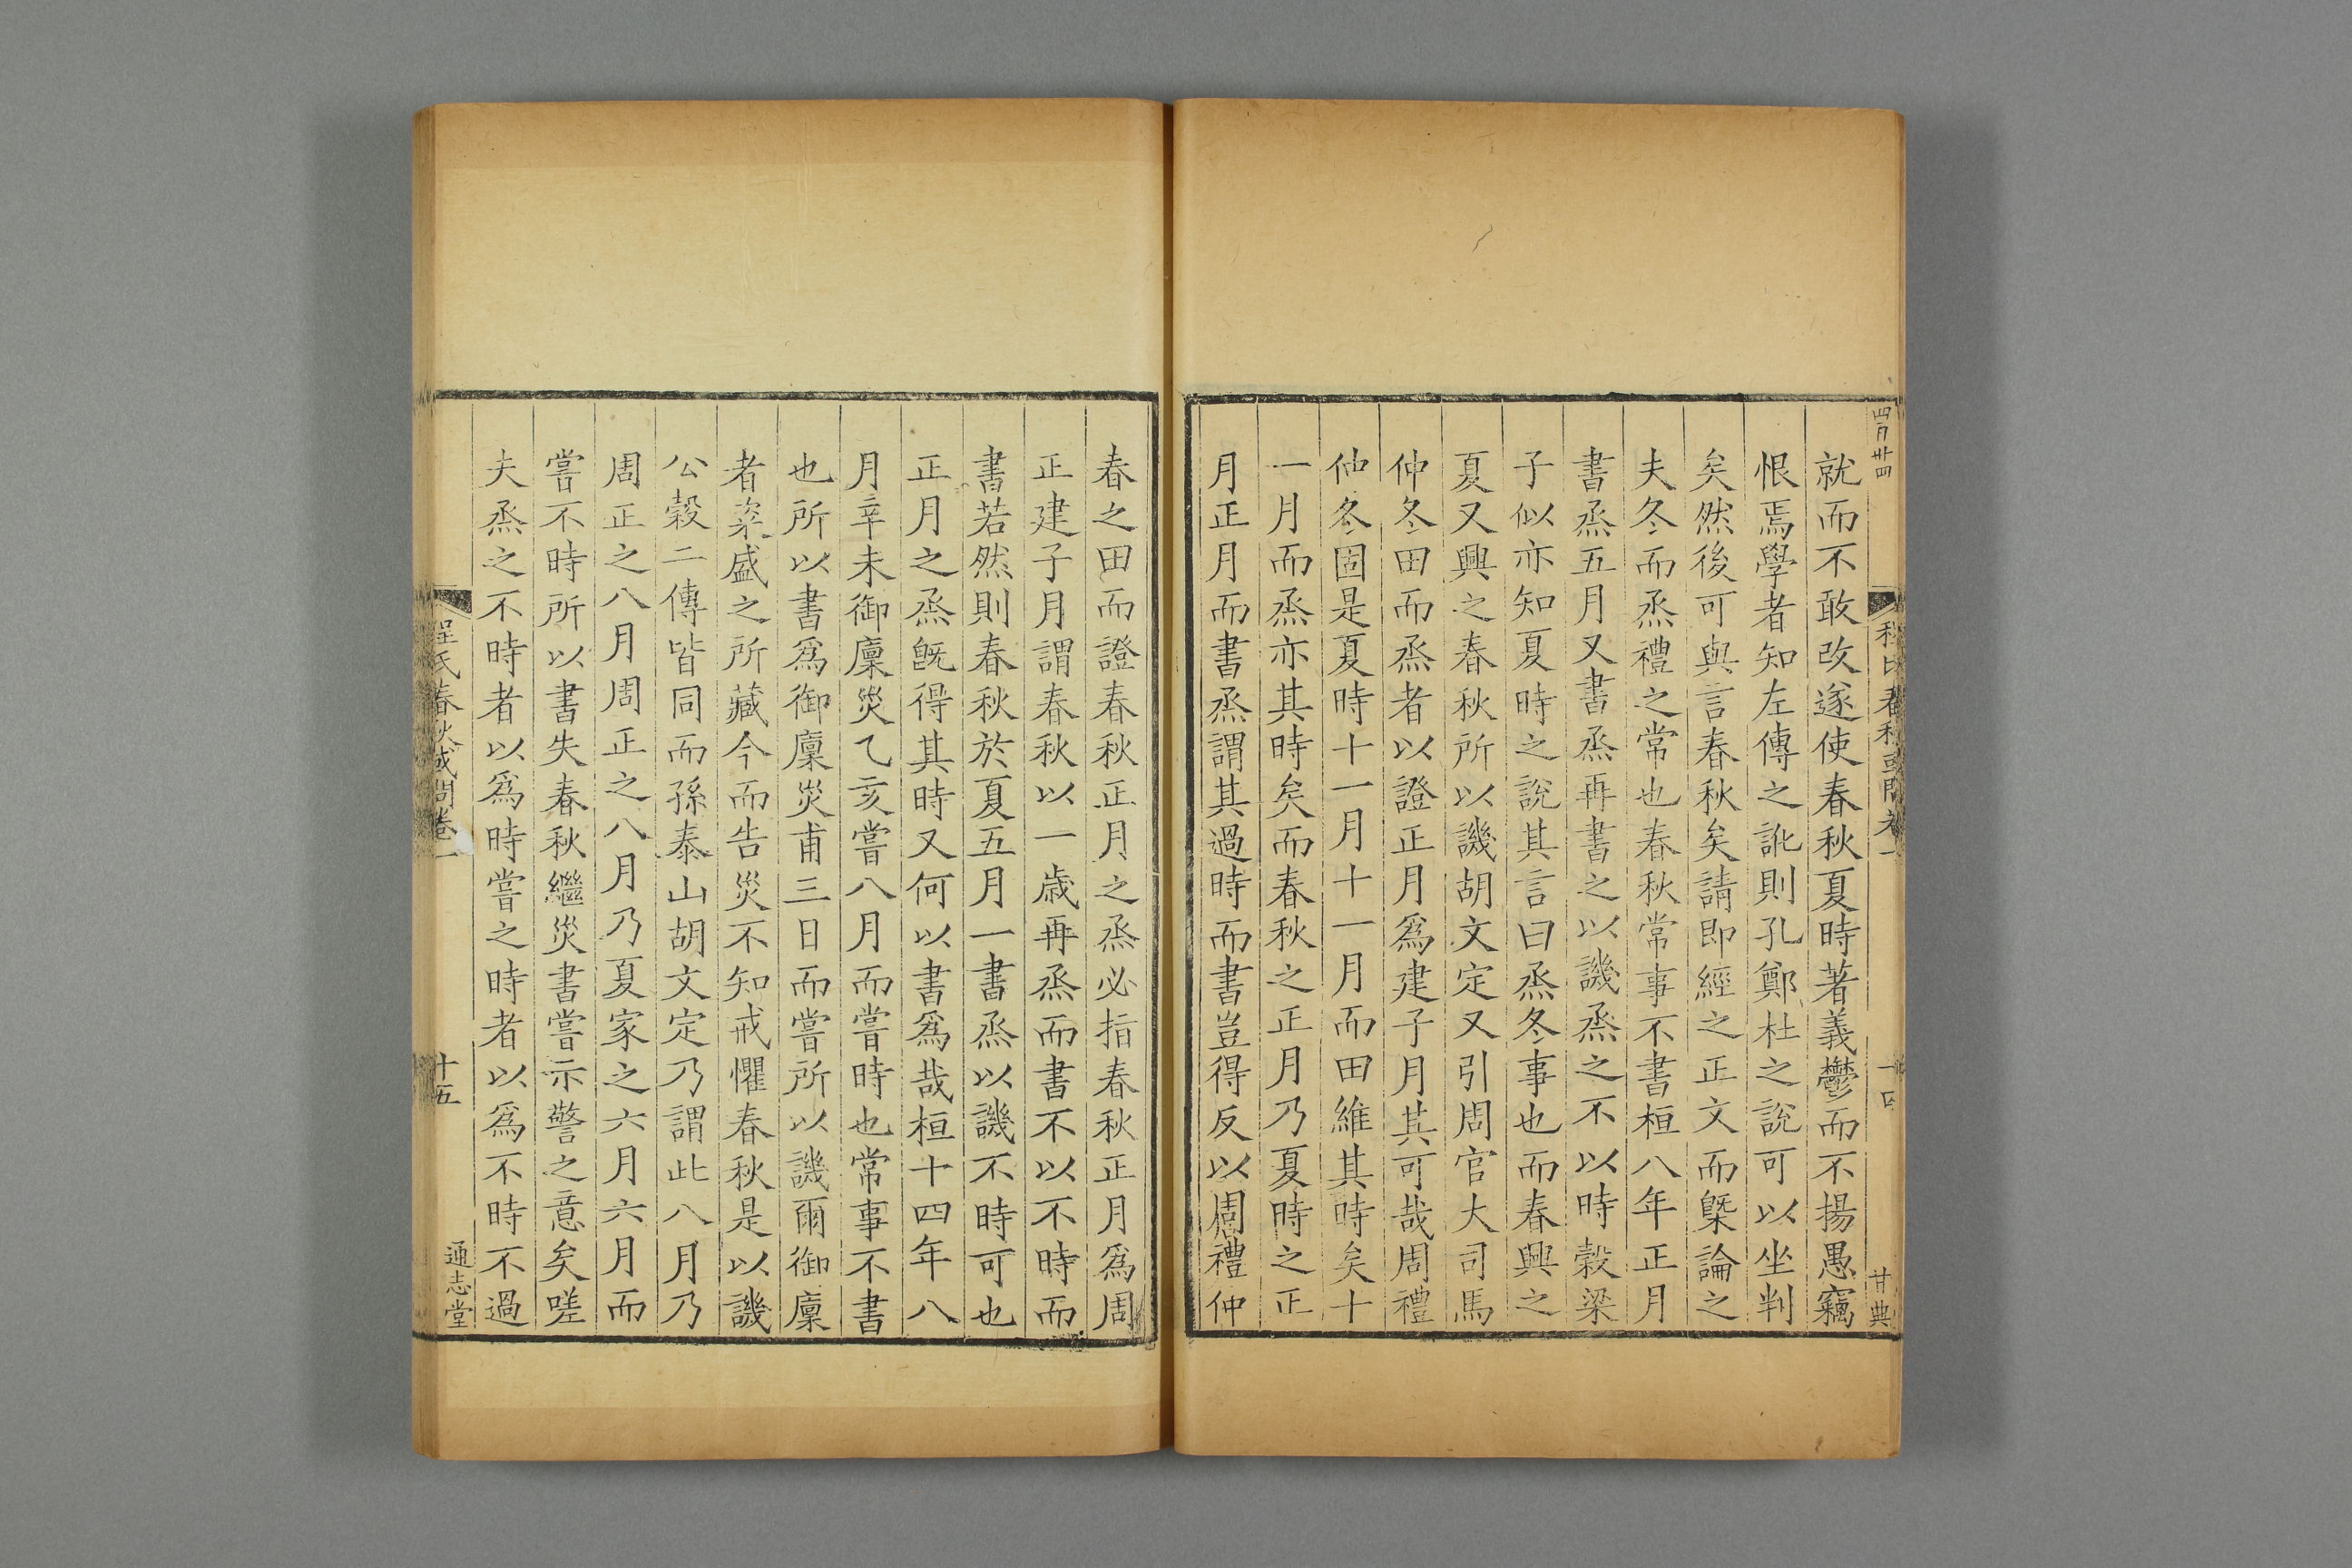 就而不敢改遂使春秋夏時著義鬱而不揚愚竊
恨焉學者知左傳之訛則孔鄭杜之說可以坐判
矣然後可與言春秋矣請即經之正文而槩論之
夫冬而烝禮之常也春秋常事不書桓八年正月
書烝五月又書烝再書之以譏烝之不以時穀梁
子似亦知夏時之說其言曰烝冬事也而春興之
夏又興之春秋所以譏胡文定又引周官大司馬
仲冬田而烝者以證正月爲建子月其可哉周禮
仲冬固是夏時十一月十一月而田維其時矣十
一月而烝亦其時矣而春秋之正月乃夏時之正
月正月而書烝謂其過時而書豈得反以周禮仲
春之田而證春秋正月之烝必指春秋正月爲周
正建子月謂春秋以一歲再烝而書不以不時而
書若然則春秋於夏五月一書烝以譏不時可也
正月之烝旣得其時又何以書爲哉桓十四年八
月辛未御廩災乙亥嘗八月而嘗時也常事不書
也所以書爲御廩災甫三日而嘗所以譏爾御廩
者粢盛之所藏今而告災不知戒懼春秋是以譏
公穀二傳皆同而孫泰山胡文定乃謂此八月乃
周正之八月周正之八月乃夏家之六月六月而
嘗不時所以書失春秋繼災書嘗示警之意矣嗟
夫烝之不時者以爲時嘗之時者以爲不時不過
程氏春秋或問卷一
十五
通志堂